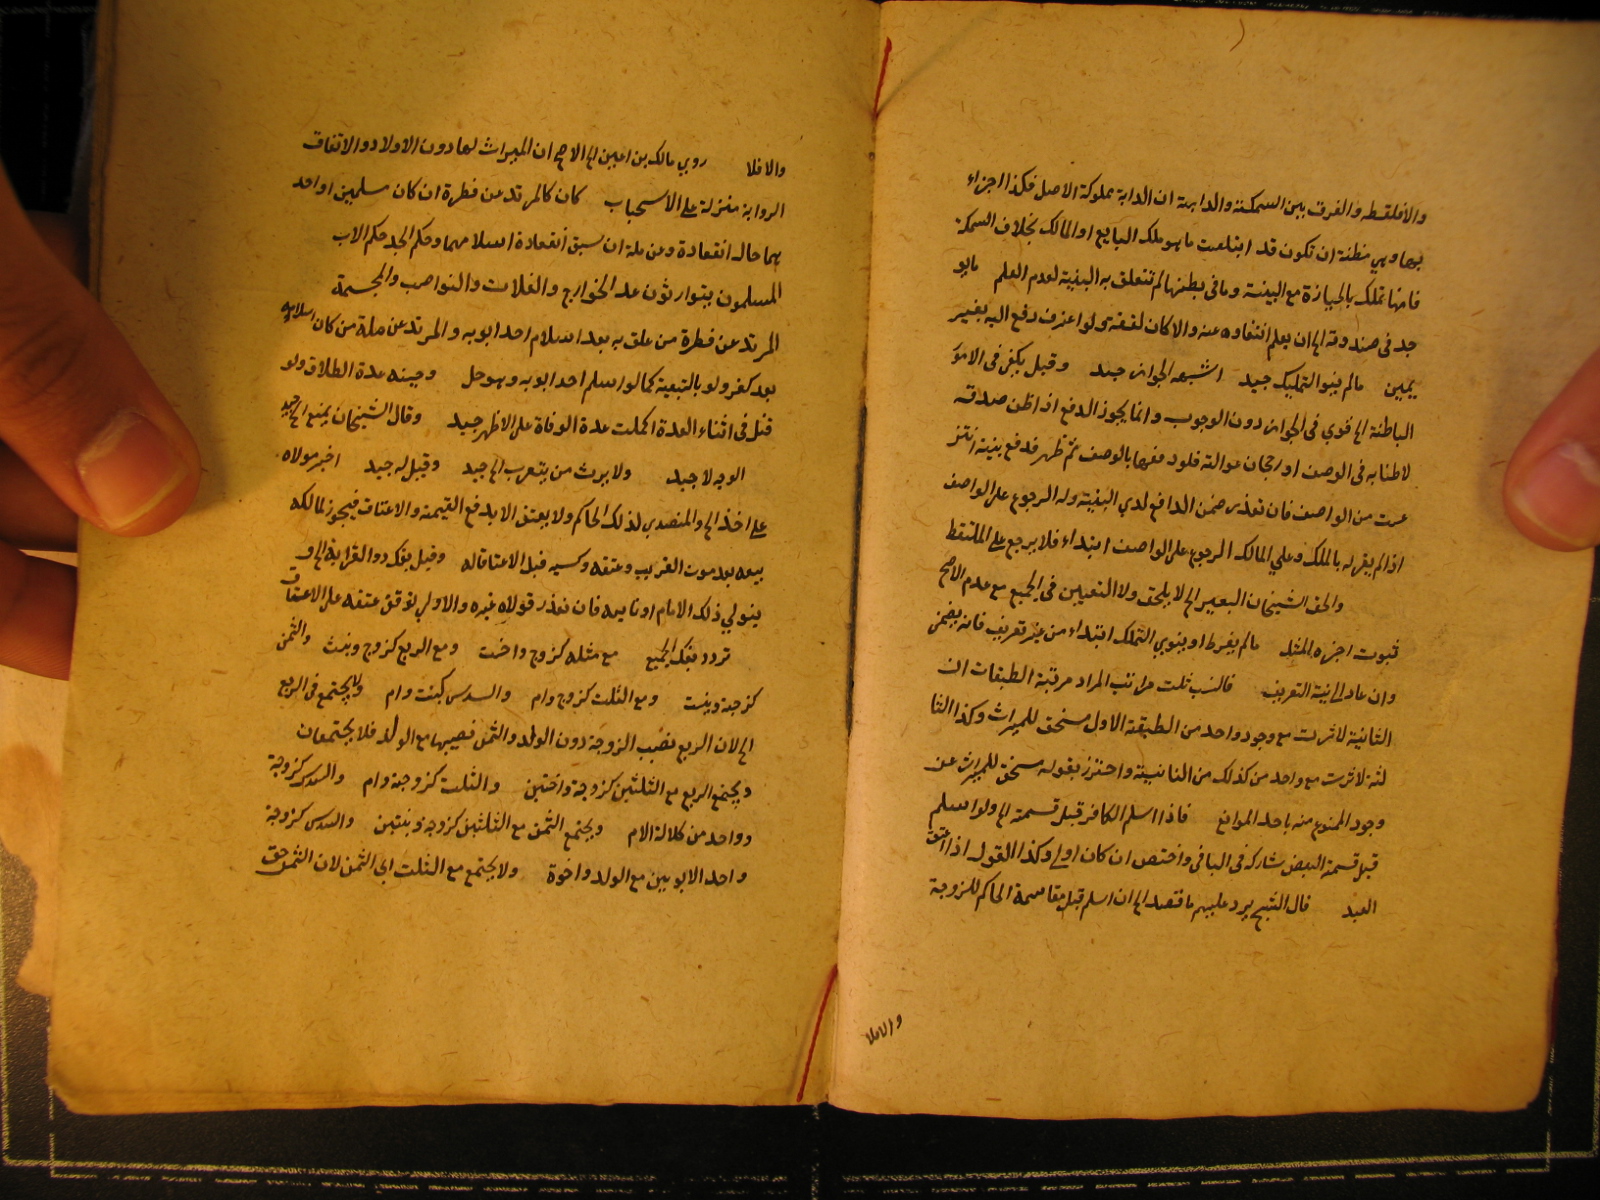 والا فلقطه والفرق بين السمكة والدابة ان الدابة مملوكة الاصل فكذا اجزاء
بها وهي مظنة ان تكون قد ابتلعت ما هو ملك البايع او المالك بخلاف السمكة
فانها تملك بالحيازة مع البينة وما في بطنها لم تتعلق به البينة لعدم العلم مايو
جد في صندوقه الى ان يعلم انتفاوه عنه والا كان لقطة ولو اعترف دفع اليه بغير
يمين مالم ينو التمليك جيد اشبهه الجواز جيد وقيل يكفى في الامو
الباطنة الى قوي في الجواز دون الوجوب وانما يجوز الدفع اذا ظن صدقه
لاطنابه في الوصف او رجحان عدالته فلو دفعها بالوصف ثم ظهر فدفع بينة انتز
عت من الواصف فان تعذر ضمن الدافع لذي البينة وله الرجوع على الواصف
اذا لم يقر له بالملك وعلى المالك الرجوع على الواصف ابتداء فلا يرجع على الملتقط
والحق الشيخان البعير الى لا يلحق ولا التعيين في الجميع مع عدم الاصح
ثبوت اجرة المثل مالم يفرط او ينوي التملك ابتداء من غير تعريف فانه يضمن
وان عاد الى نية التعريف فالنسب ثلث مراتب المراد مرتبة الطبقات ان
الثانية لا ترث مع وجود واحد من الطبقة الاول مستحق للميراث وكذا الثا
لثة لا ترث مع واحد من كذلك من الثانية واحترز بقوله مستحق للميراث عن
وجود الممنوع منه باحد الموانع فاذا اسلم الكافر قبل قسمته الى ولو اسلم
قبل قسمة البعض شارك في الباقي واختص ان كان اولى وكذا القول اذا اعتق
العبد قال الشيخ يرد عليهم ما قصد الى ان اسلم قبل مقاسمة الحاكم للزوجة
والا فلا
والا فلا روي مالك بن اعين الى الاصح ان الميراث لهما دون الاولاد والاتفاق
الرواية منزلة على الاستحباب كان كالمرتد عن فطرة ان كان مسلمين او احد
هما حال انعقاده وعن ملة ان سبق انعقاده اسلامهما وحكم الجد حكم الاب
المسلمون يتوارثون عدا الخوارج والغلات والنواصب والمجسمة
المرتد عن فطرة من علق به بعد اسلام احد ابويه والمرتد عن ملة من كان اسلامه
بعد كفر ولو بالتبعية كما لو اسلم احد ابويه وهو حمل وحينه عدة الطلاق ولو
قتل في اثناء العدة اكملت عدة الوفاة على الاظهر جيد وقال الشيخان يمنع الى جيد
الوجه لا جيد ولا يرث من يتقرب الى جيد وقيل له جيد اخبر مولاه
على اخذ الى والمتصدي لذلك الحاكم ولا يعتق الا بدفع القيمة والاعتاق فيجوز لمالكه
بيعه بعد موت القريب وعتقه وكسبه قبل الاعتاق له وقيل يفك ذو القرابة الى و
يتولي ذلك الامام او نايبه فان تعذر تولاه غيره والاولى توقف عتقه على الاعتاق
تردد يفك الجميع مع مثله كزوج واخت ومع الربع كزوج وبنت والثمن
كزوجة وبنت ومع الثلث كزوج وام والسدس كبنت وام ولا يجتمع في الربع
الى لان الربع نصيب الزوجة دون الولد والثمن نصيبها مع الولد فلا يجتمعان
ويجتمع الربع مع الثلثين كزوجة واختين والثلث كزوجة وام والسدس كزوجة
وواحد من كلالة الام ويجتمع الثمن مع الثلثين كزوجة وبنتين والسدس كزوجة
واحد الابوين مع الولد واخوة ولا يجتمع مع الثلث اي الثمن لان الثمن حق